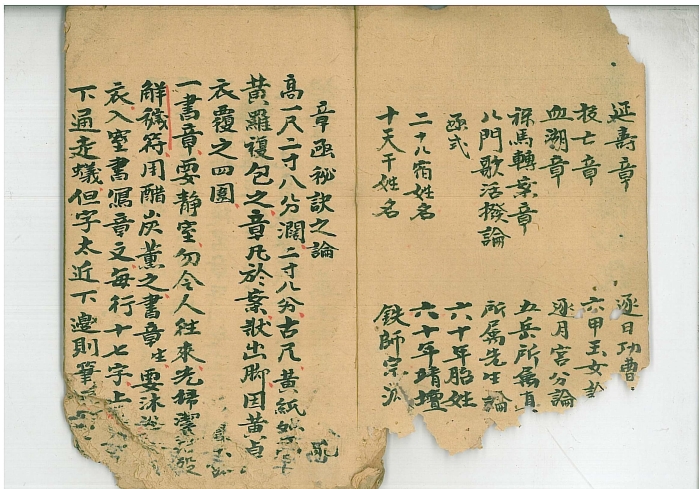 延壽章 逐日功曹
拔亡章 六甲玉女
血湖章 逐月宮分論
祿馬轉案章 五岳所属
八門歌活撥論 所属先生論
函式 六十年胎姓
二十八宿姓名 六十年靖壇
十天干姓名 鉄師宗派
章函秘訣之論
高一尺二寸八分濶二寸八分古尺黄紙
黄羅複包之章凡於案狀出脚因黄
衣覆之四圍
一書章要静室勿令人往來先掃潔
解穢符用醋炭薰之書章生要沐浴
衣入室書寫章文每行十七字上
下通走蟻但字太近下邊則筆